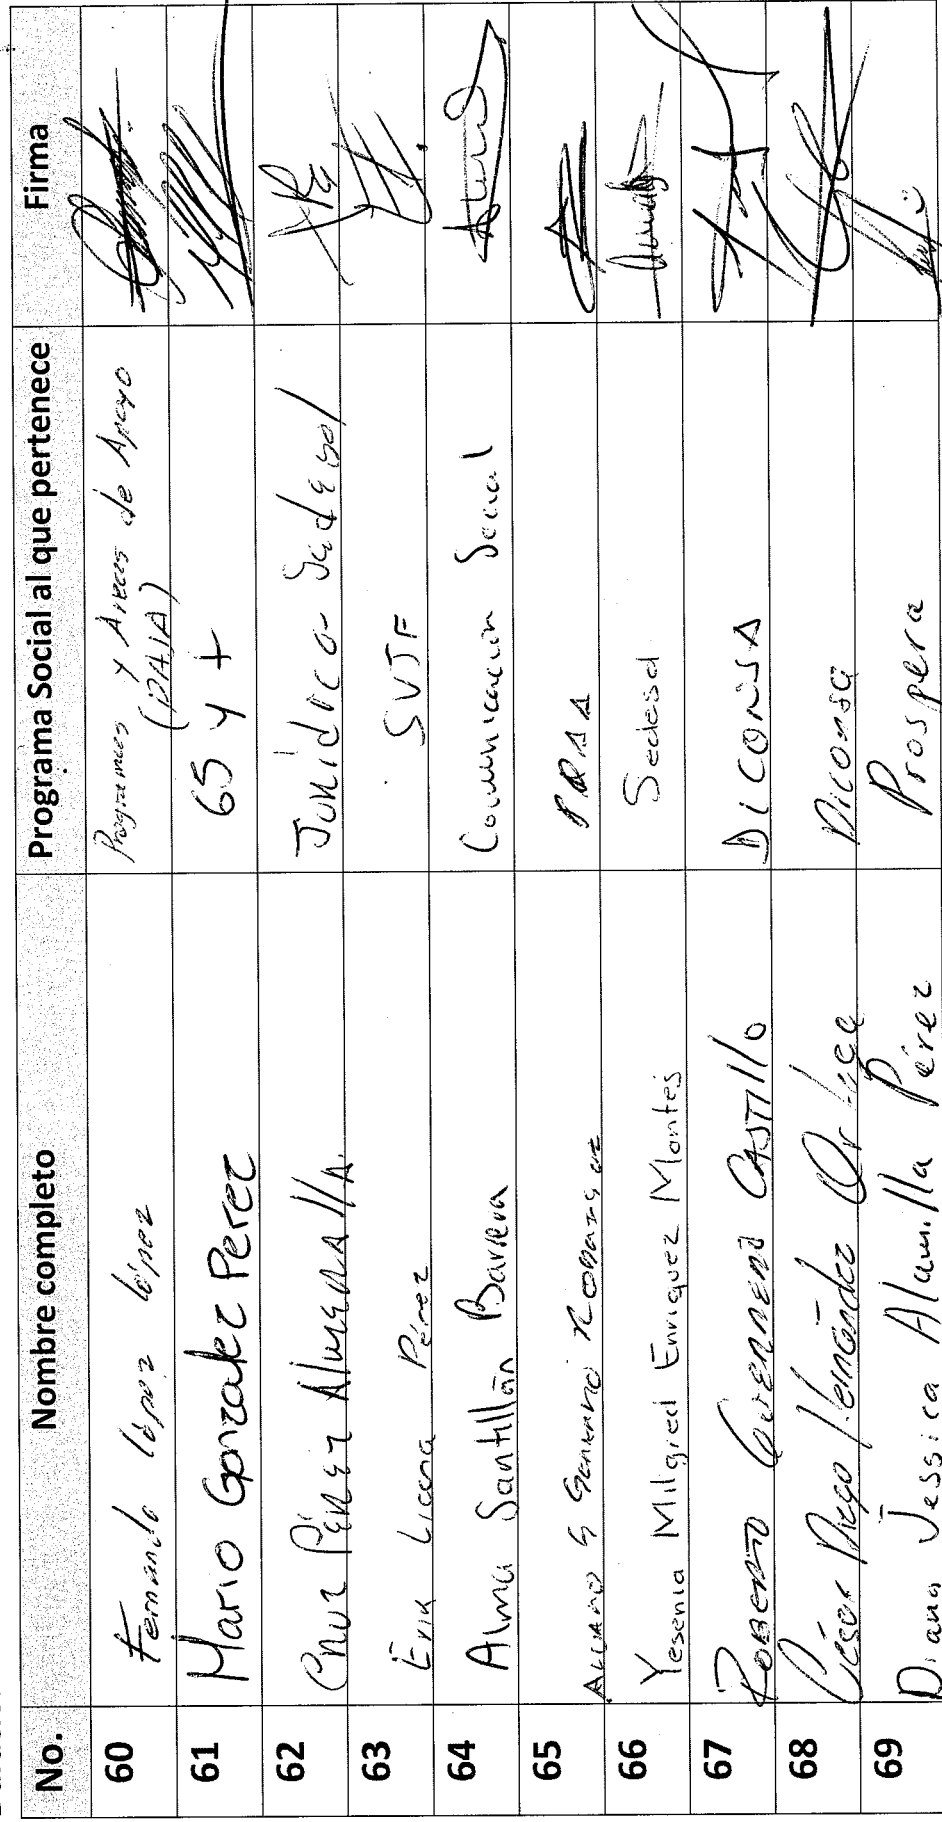 No. Nombre completo Programa Social al que pertenece Firma
60 Fernando lópez lópez Programas y Areas de Apoyo
(PAJA)
61 Mario Gonzalez Perez 65 y +
62 Cruz Pérez Almeralla Juridico Sedesol
63 Erik Licona Pérez SVJF
64 Alma Santillán Barrera Comunicación Social
65 G
66 Yesenia Miligred Enriquez Montes Sedesol
67 ROBERTO CASTIllO DICONSA
68 César Diego Hernández Diconsa
69 Diana Jessica Alamilla Pérez Prospera